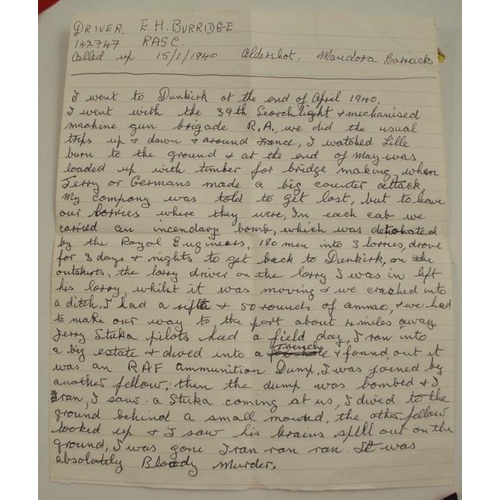 DRIVER. E.H. BURRIDGE
142747 RASC.
Called up 15/1/1940 Aldershot. Mandora Barracks
I went to Dunkirk at the end of April 1940,
I went with the 39th Searchlight & mechanised
machine gun brigade R.A, we did the usual
trips up & down & around France, I watched Lille
burn to the ground & at the end of May was
loaded up with timber for bridge making, when
Jerry or Germans made a big counter attack
My company was told to get lost, but to leave
our lorries where they were, In each cab we
carried an incendary bomb, which was detonated
by the Royal Engineers, 180 men into 3 lorries, drove
for 3 days & nights to get back to Dunkirk, on the
outskirts, the lorry driver on the lorry I was in left
his lorry, whilst it was moving & we crashed into
a ditch, I had a rifle & 50 rounds of ammo, & we had
to make our way to the port about 4 miles away
Jerry Stuka pilots had a field day, I ran into
a big estate & dived into a trench & found out it
was an RAF ammunition Dump, I was joined by
another fellow, then the dump was bombed & I
ran, I saw a Stuka coming at us, I dived to the
ground behind a small mound, the other fellow
looked up & I saw his brains spill out on the
ground, I was gone I ran ran ran It was
absolutely Bloody Murder.